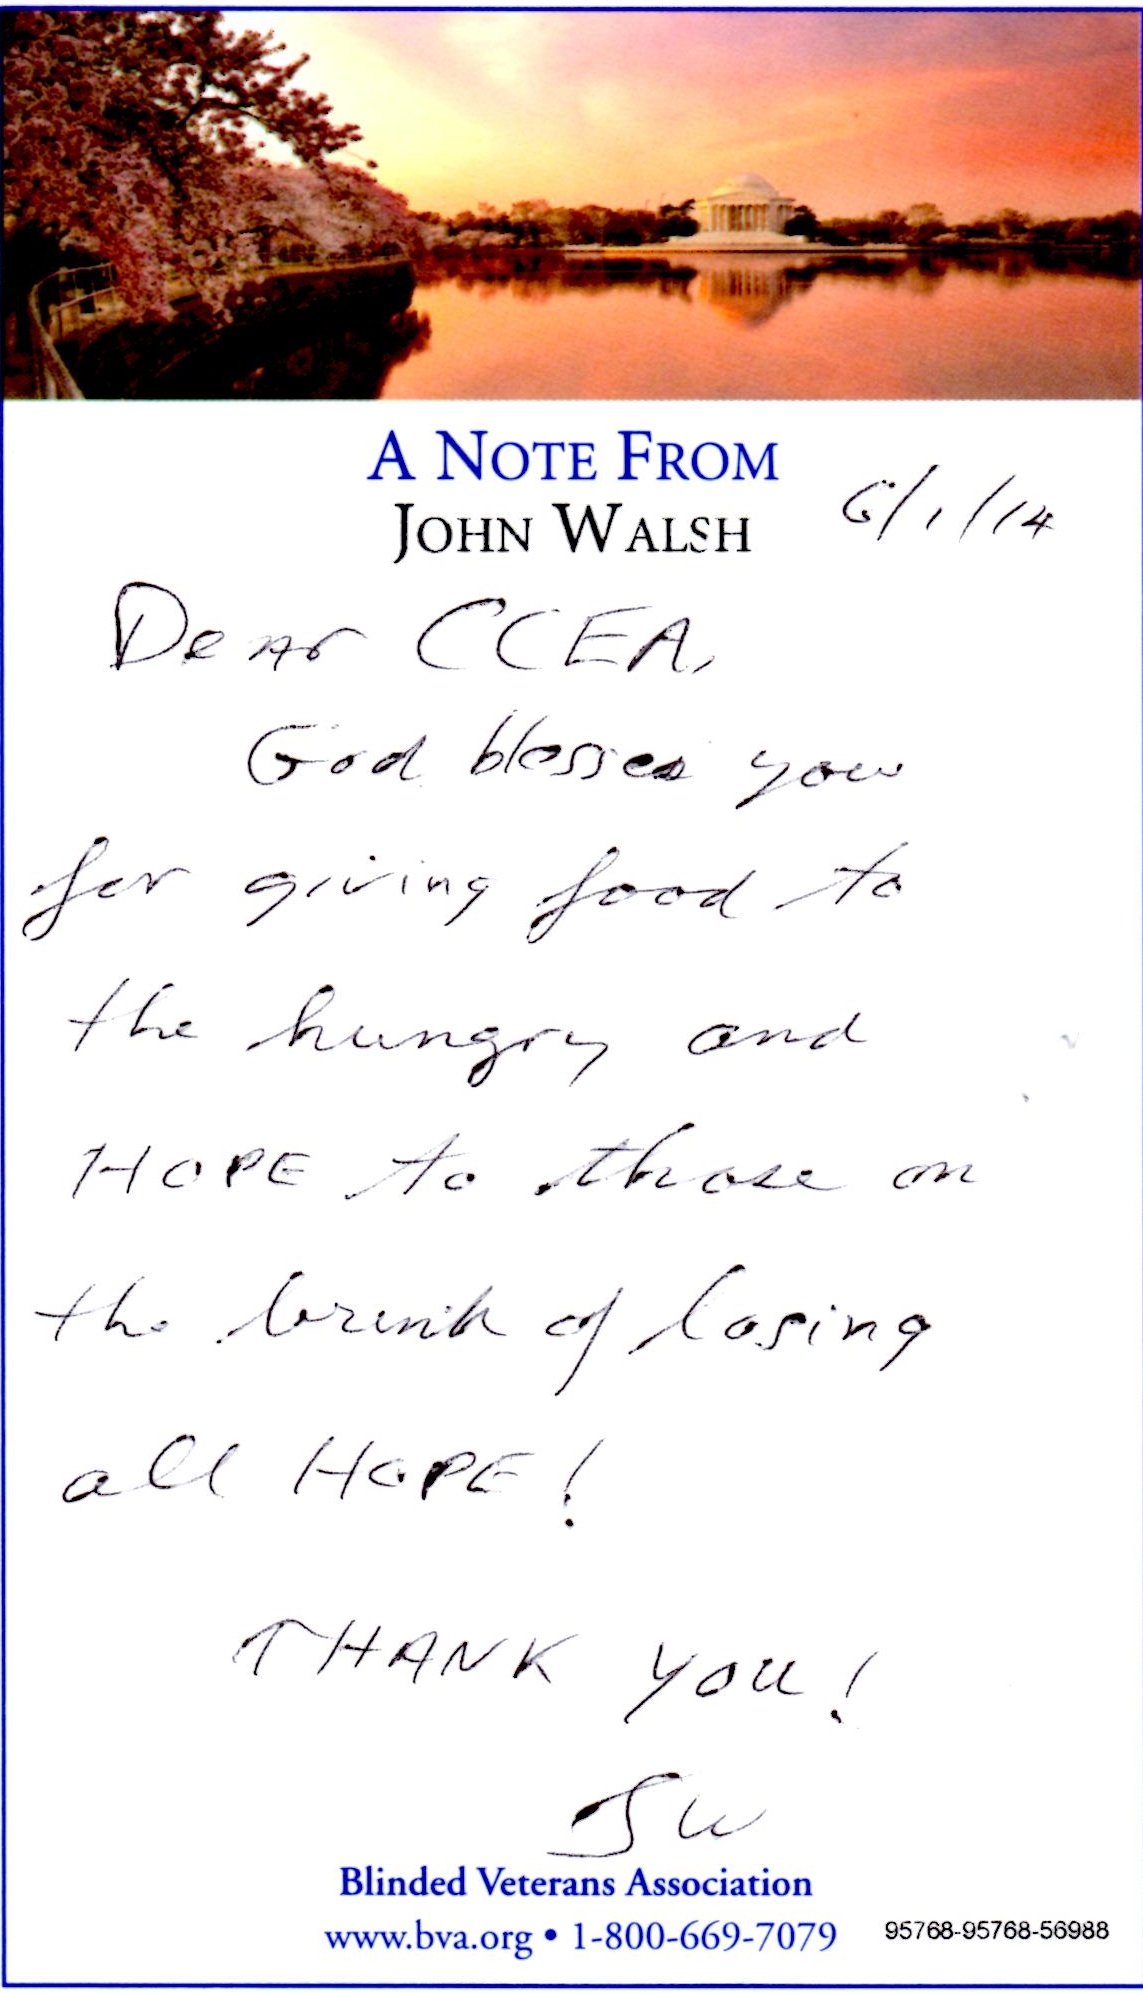 A NOTE FROM
JOHN WALSH
6/1/14
Dear CCEA,
God blesses you
for giving food to
the hungry and
HOPE to those on
the brink of losing
all HOPE!
THANK YOU!
JW
Blinded Veterans Association
www.bva.org • 1-800-669-7079
95768-95768-56988